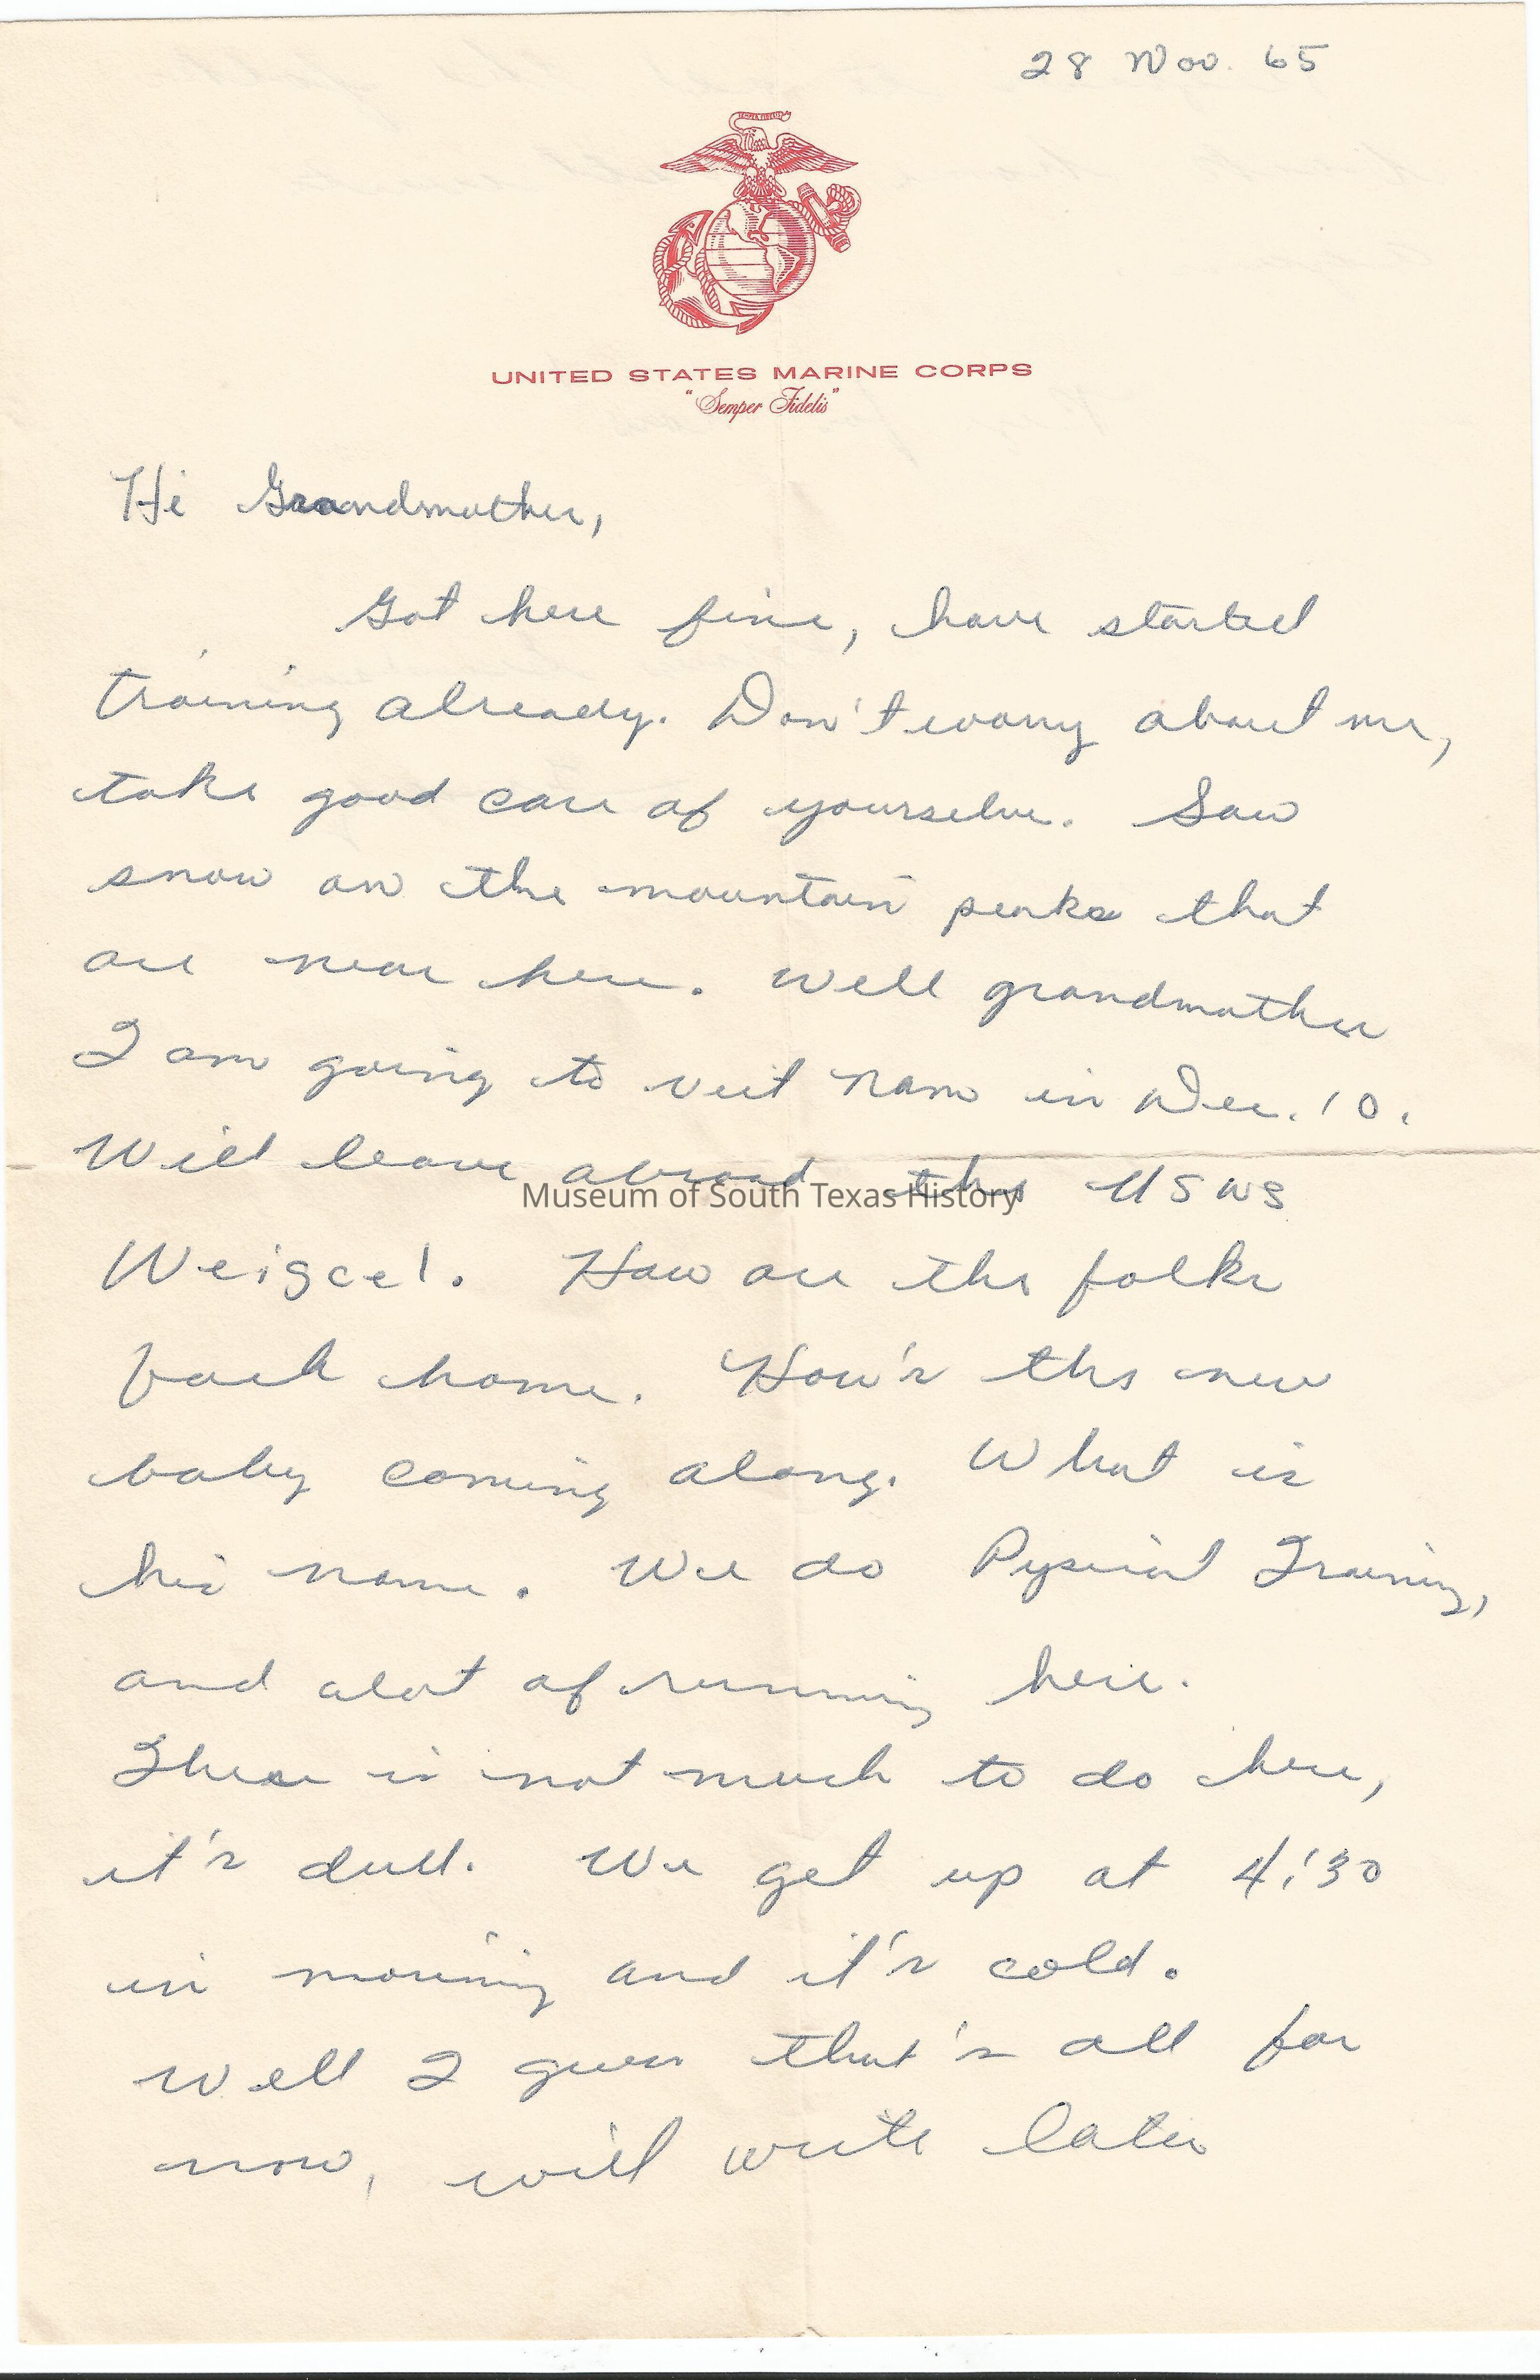 28 Nov. 65
UNITED STATES MARINE CORPS
"Semper Fidelis"
Hi Grandmother,
Got here fine, have started
training already. Don't worry about me,
take good care of yourselve. Saw
snow on the mountain peaks that
are near here. Well grandmother
I am going to viet nam in Dec. 10.
Will leave abroad the USNS
Weigcel. How are the folks
back home. How's the new
baby coming along. What is
his name. We do Pysical Training,
and alot of running here.
There is not much to do here,
it's dull. We get up at 4:30
in morning and it's cold.
Well I guess that's all for
now, will write later
Museum of South Texas History